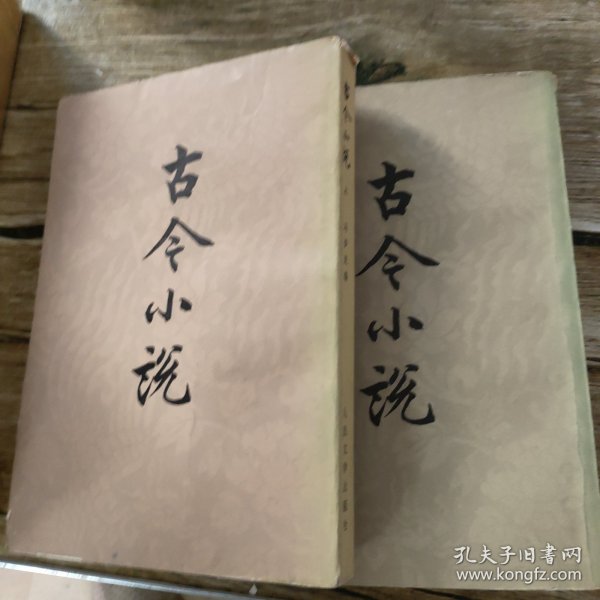 古今小说
古今小说
冯梦龙编
人民文学出版社
古今小说
孔夫子旧书网
www.kongfz.com